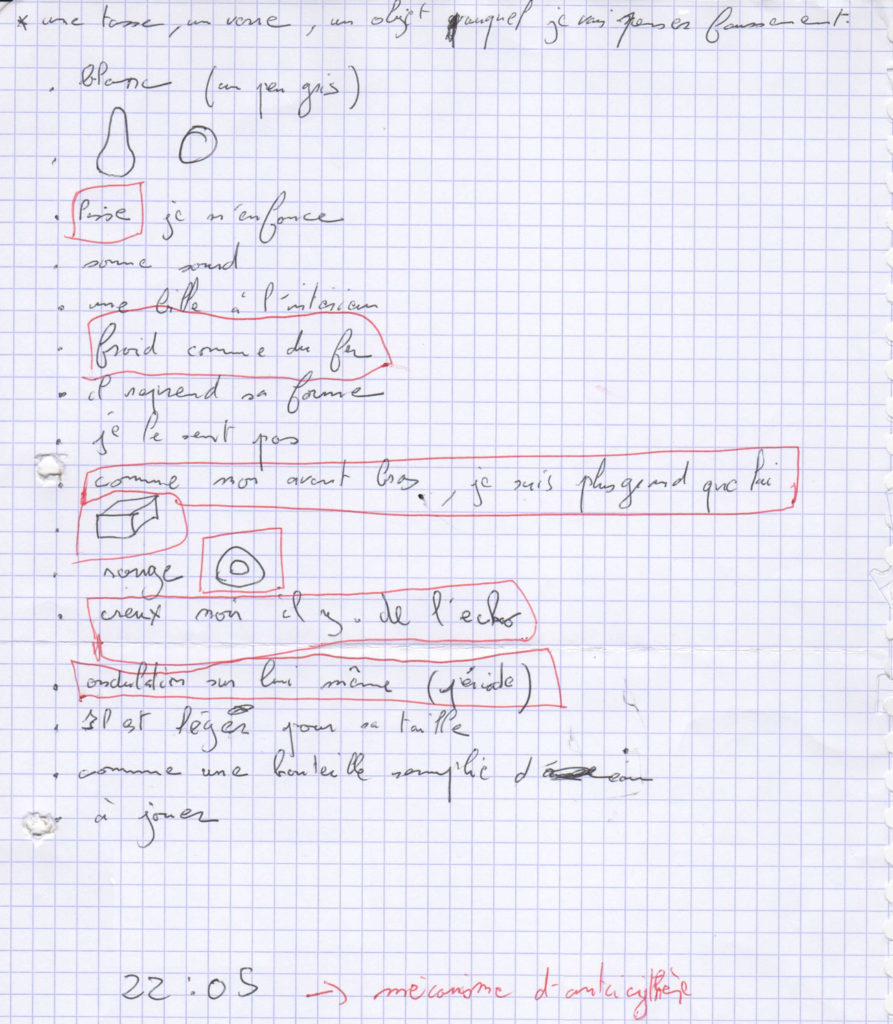 * une tasse, un verre, un objet auquel je vais penser faussement.
. blanc (un peu gris)
. lisse je m'enfonce
. sonne sourd
. une bille à l'intérieur
. froid comme du fer
. il reprend sa forme
. je le sent pas
. comme mon avant bras, je suis plus grand que lui
. rouge
. creux non il y a de l'echo
. ondulation sur lui même (période)
. Il est léger pour sa taille
. comme une bouteille remplie d'eau
. à jouer
22:05 → mécanisme d'anticythère